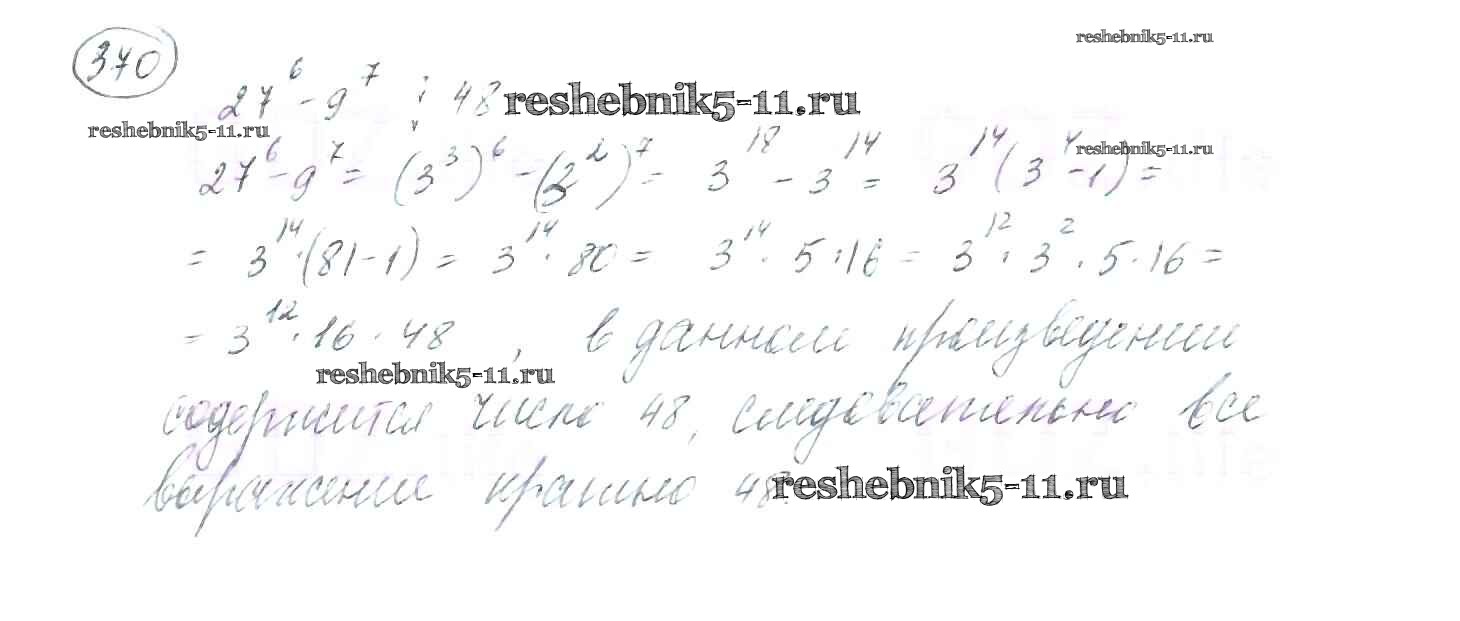 370
reshebnik5-11.ru
27⁶ - 9⁷ ⋮ 48 reshebnik5-11.ru
reshebnik5-11.ru
27⁶ - 9⁷ = (3³)⁶ - (3²)⁷ = 3¹⁸ - 3¹⁴ = 3¹⁴(3⁴ - 1) =
reshebnik5-11.ru
= 3¹⁴ · (81 - 1) = 3¹⁴ · 80 = 3¹⁴ · 5 · 16 = 3¹² · 3² · 5 · 16 =
= 3¹² · 16 · 48 , в данном произведении
reshebnik5-11.ru
содержится число 48, следовательно все
выражение кратно 48. reshebnik5-11.ru